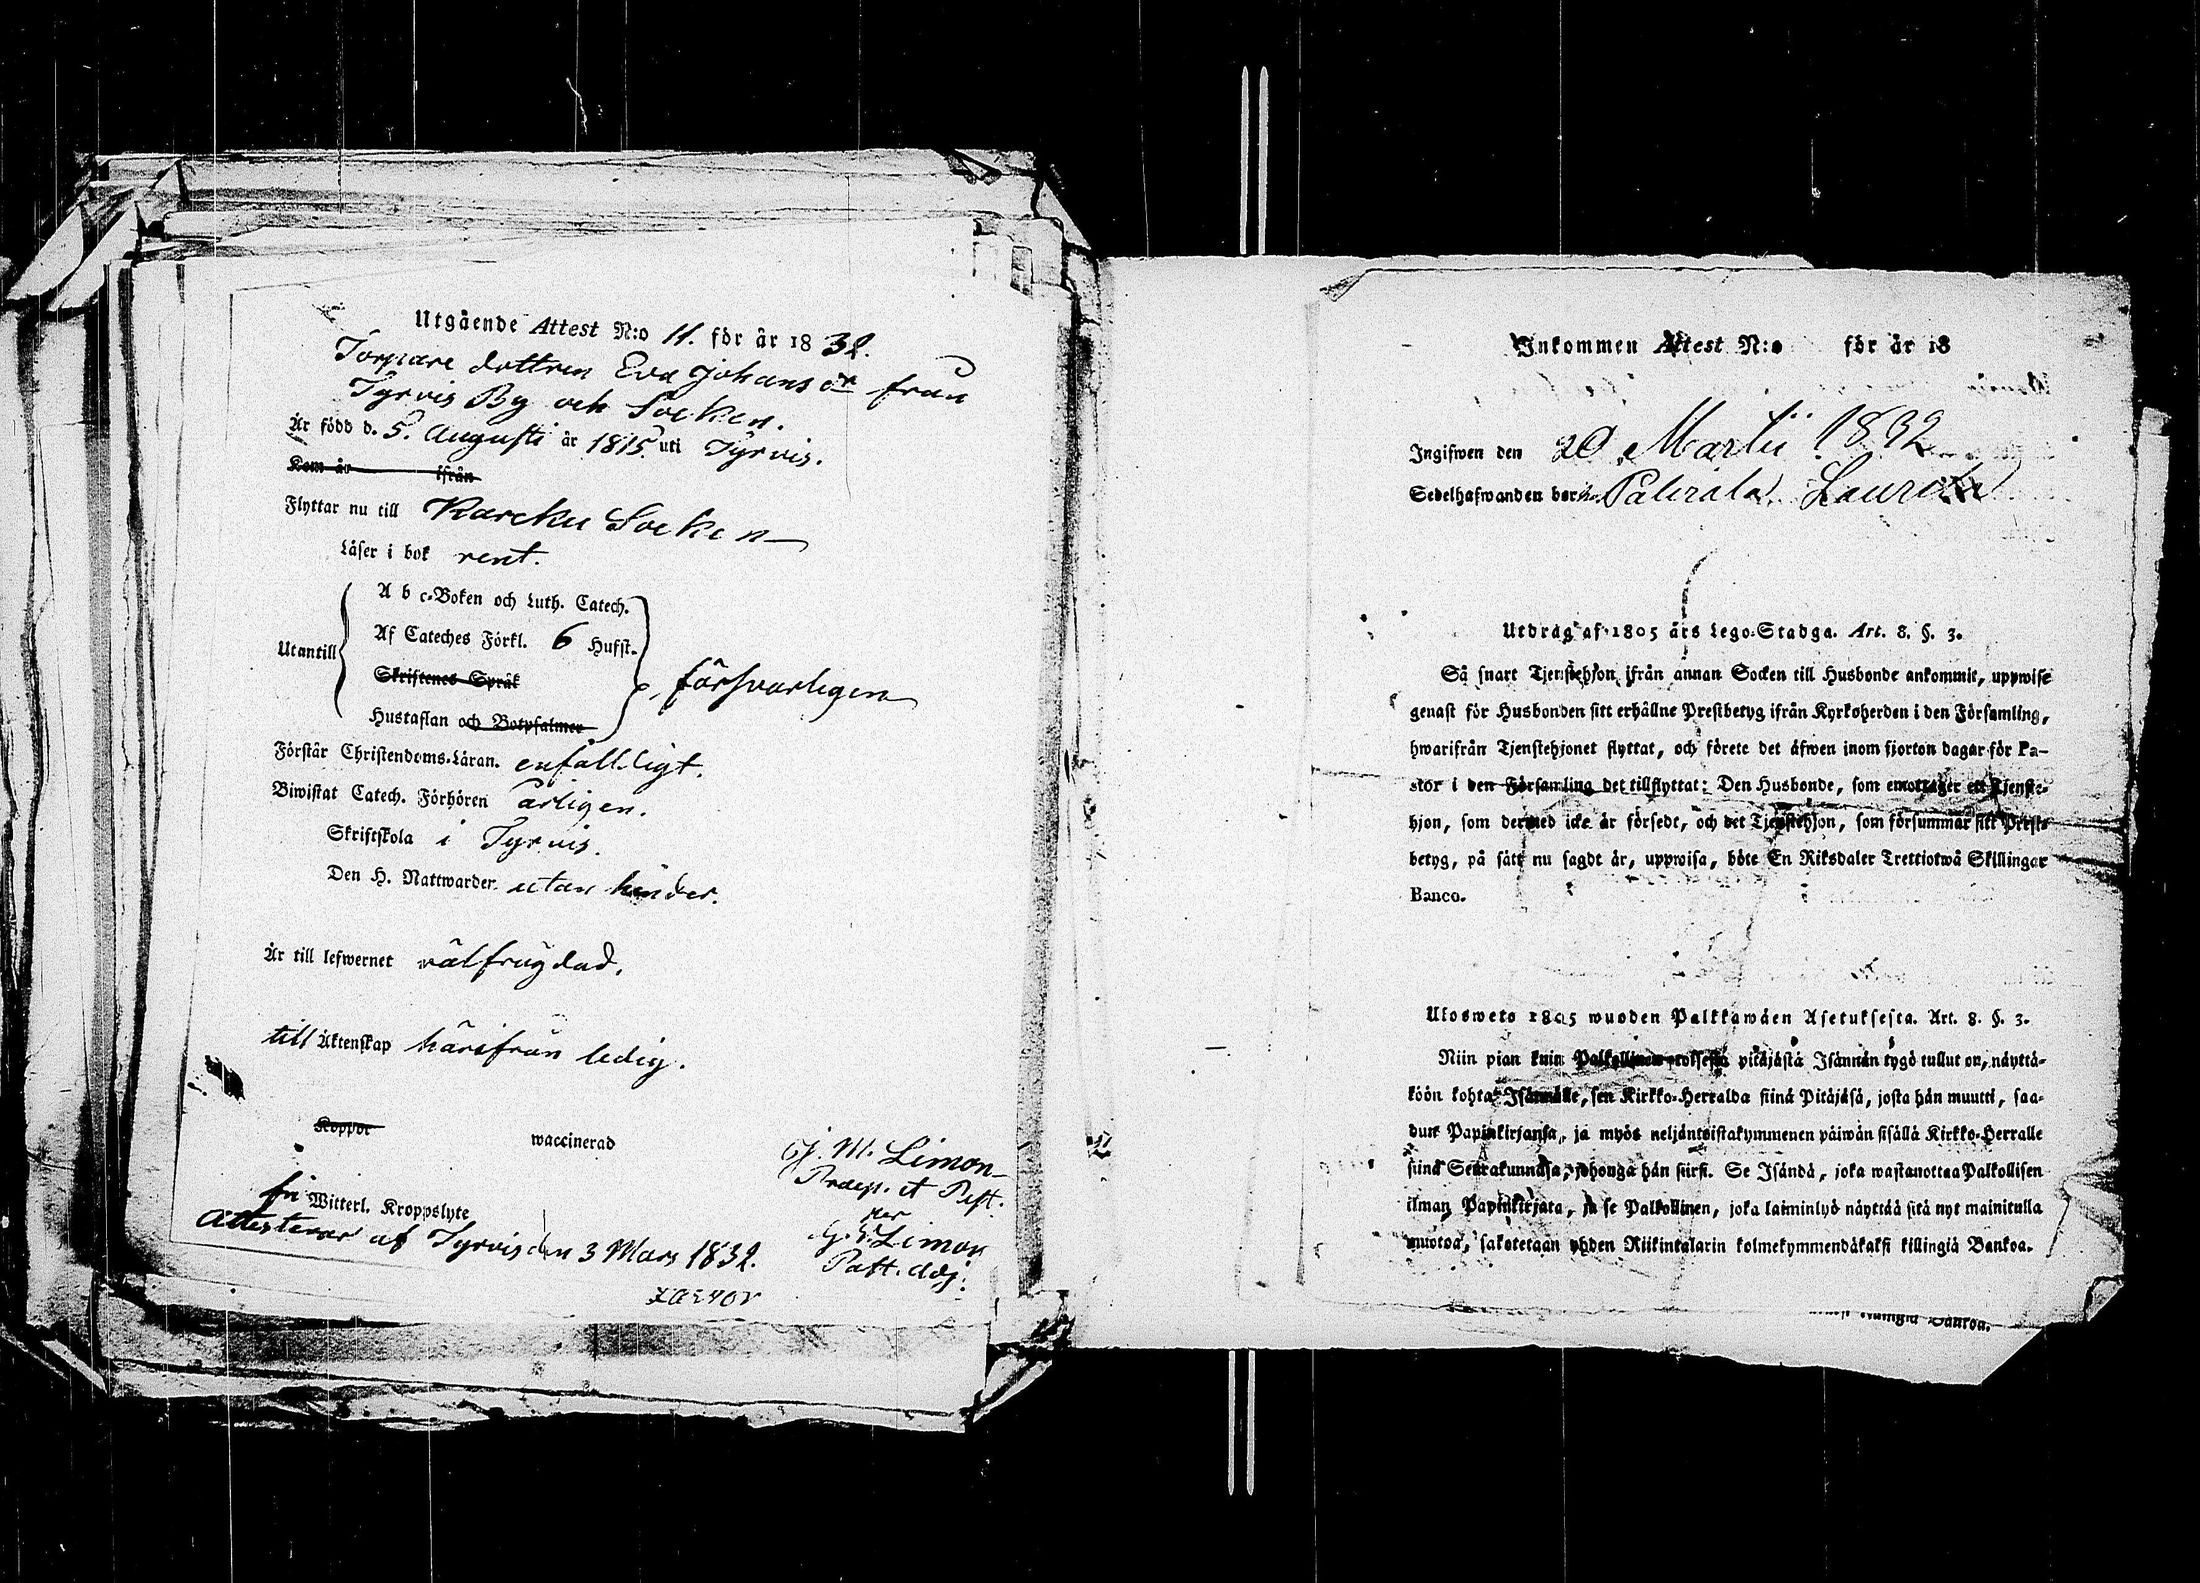 Utgående Attest N:o 11. för år 1832.
Torpare dottren Eva Johans dr från
Tyrvis By och Socken.
Är född d. 5. Augusti år 1815. uti Tyrvis.
Kom år ifrån
Flyttar nu till Karcku Socken
Läser i bok rent.
A b c-Boken och Luth. Catech.
Af Cateches Förkl. 6 Hufst.
Utantill
Skriftenes Språk
försvarligen
Hustaflan och Botpsalmer
Förstår Christendoms-Läran. enfalldigt.
Biwistat Catech. Förhören årligen.
Skriftskola i Tyrvis.
Den H. Nattwarder utan hinder.
Är till lefwernet välfrägdad.
till Äktenskap härifrån ledig.
Koppor waccinerad
fri Witterl. Kroppslyte
Attesterar af Tyrvis den 3 Mars 1832.
J. M. Limon
Praep. et Past.
per
G. E. Limon
Past. adj.
Inkommen Attest N:o för år 18
Ingifwen den 20 Martii 1832
Sedelhafwanden bor
Utdrag af 1805 års Lego-Stadga. Art. 8. §. 3.
Så snart Tjenstehjon ifrån annan Socken till Husbonde ankommit, uppwise
genast för Husbonden sitt erhållne Prestbetyg ifrån Kyrkoherden i den Församling,
hwarifrån Tjenstehjonet flyttat, och förete det äfwen inom fjorton dagar för Pa-
stor i den Församling det tillflyttat: Den Husbonde, som emottager ett Tjenste-
hjon, som dermed icke är försedt, och det Tjenstehjon, som försummar sitt Prest-
betyg, på sätt nu sagdt är, uppwisa, böte En Riksdaler Trettiotwå Skillingar
Banco.
Ulosweto 1805 wuoden Palkkawäen Asetuksesta. Art. 8. §. 3.
Niin pian kuin Palkollinen toisesta pitäjästä Isännän tygö tullut on, näyttä-
köön kohta Isännälle, sen Kirkko-Herralda siinä Pitäjäsä, josta hän muutti, saa-
dun Papinkirjansa, ja myös neljäntoistakymmenen päiwän sisällä Kirkko-Herralle
siinä Seurakunnasa, johonga hän siirsi. Se Isändä, joka wastanottaa Palkollisen
ilman Papinkirjata, ja se Palkollinen, joka laiminlyö näyttää sitä nyt mainitulla
muotoa, sakotetaan yhden Riikintalarin kolmekymmendäkaksi killingiä Bankoa.
killingiä Bankoa.